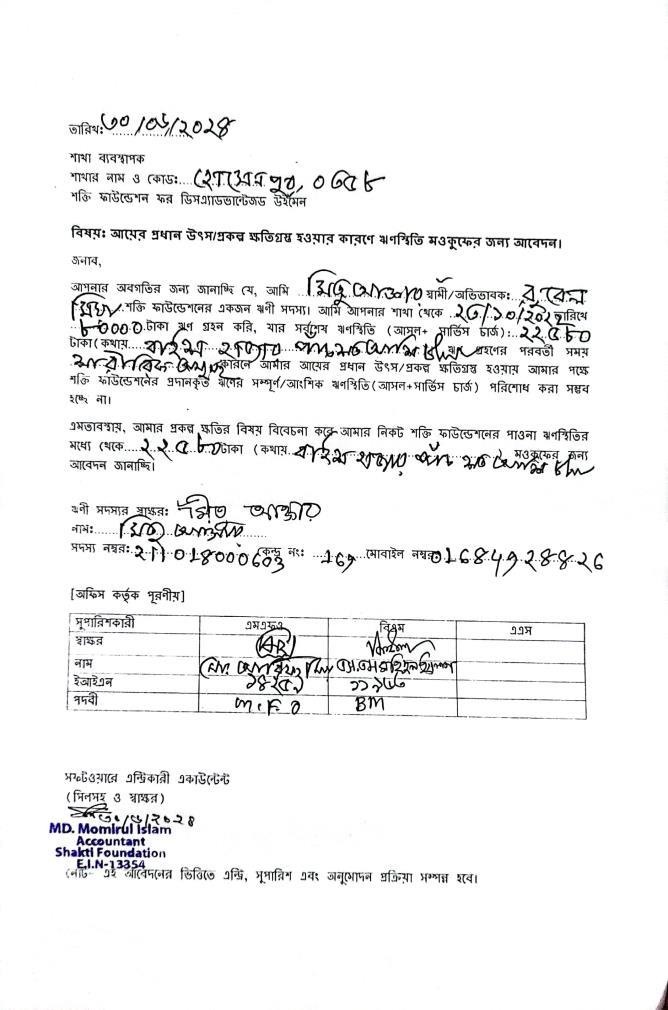 তারিখ: ৩০/০৬/২০২৪
শাখা ব্যবস্থাপক
শাখার নাম ও কোড: হোসেনপুর, ০৩৫৮
শক্তি ফাউন্ডেশন ফর ডিসএ্যাডভান্টেজড উইমেন
বিষয়: আয়ের প্রধান উৎস/প্রকল্প ক্ষতিগ্রস্থ হওয়ার কারণে ঋণস্থিতি মওকুফের জন্য আবেদন।
জনাব,
আপনার অবগতির জন্য জানাচ্ছি যে, আমি মিতু আক্তার স্বামী/অভিভাবক: রুবেল
মিয়া শক্তি ফাউন্ডেশনের একজন ঋণী সদস্য। আমি আপনার শাখা থেকে তারিখে
৮০০০০ টাকা ঋণ গ্রহন করি, যার সর্বশেষ ঋণস্থিতি (আসল+ সার্ভিস চার্জ): ২২৫৮০
টাকা (কথায় বাইশ হাজার পাঁচশত আশি টাকা ঋণ গ্রহণের পরবর্তী সময়
শারীরিক অসুস্থ কারনে আমার আয়ের প্রধান উৎস/প্রকল্প ক্ষতিগ্রস্থ হওয়ায় আমার পক্ষে
শক্তি ফাউন্ডেশনের প্রদানকৃত ঋণের সম্পূর্ণ/আংশিক ঋণস্থিতি (আসল+সার্ভিস চার্জ) পরিশোধ করা সম্ভব
হচ্ছে না।
এমতাবস্থায়, আমার প্রকল্প ক্ষতির বিষয় বিবেচনা করে আমার নিকট শক্তি ফাউন্ডেশনের পাওনা ঋণস্থিতির
মধ্যে থেকে ২২৫৮০ টাকা (কথায় বাইশ হাজার পাঁচ শত আশি টাকা মওকুফের জন্য
আবেদন জানাচ্ছি।
ঋণী সদস্যর স্বাক্ষর: মিতু আক্তার
নাম: মিতু আক্তার
সদস্য নম্বর: 211018000603 কেন্দ্র নং: 169 মোবাইল নম্বর: 01684928826
[অফিস কর্তৃক পূরণীয়]
সুপারিশকারী এমএফও বিএম এএস
স্বাক্ষর
নাম
ইআইএন ১৪২৫৯
পদবী M.F.O BM
সফটওয়ারে এন্ট্রিকারী একাউন্টেন্ট
(সিলসহ ও স্বাক্ষর)
MD. Momirul Islam
Accountant
Shakti Foundation
E.I.N-13354
নোট- এই আবেদনের ভিত্তিতে এন্ট্রি, সুপারিশ এবং অনুমোদন প্রক্রিয়া সম্পন্ন হবে।